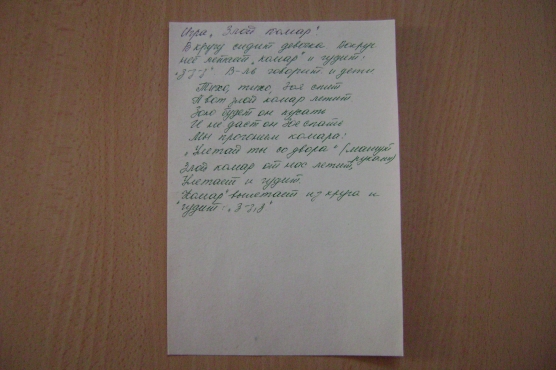 Игра „Злой комар".
В кругу сидит девочка Вокруг
неё летает „комар" и гудит:
"З-З-З" В-ль говорит и дети
Тихо, тихо, Зоя спит
А вот злой комар летит
Зою будет он кусать
И не даст он Зое спать
Мы прогоним комара:
„Улетай ты со двора" (машут руками)
Злой комар от нас летит,
Улетает и гудит.
"Комар" вылетает из круга и
гудит - „З-З-З"